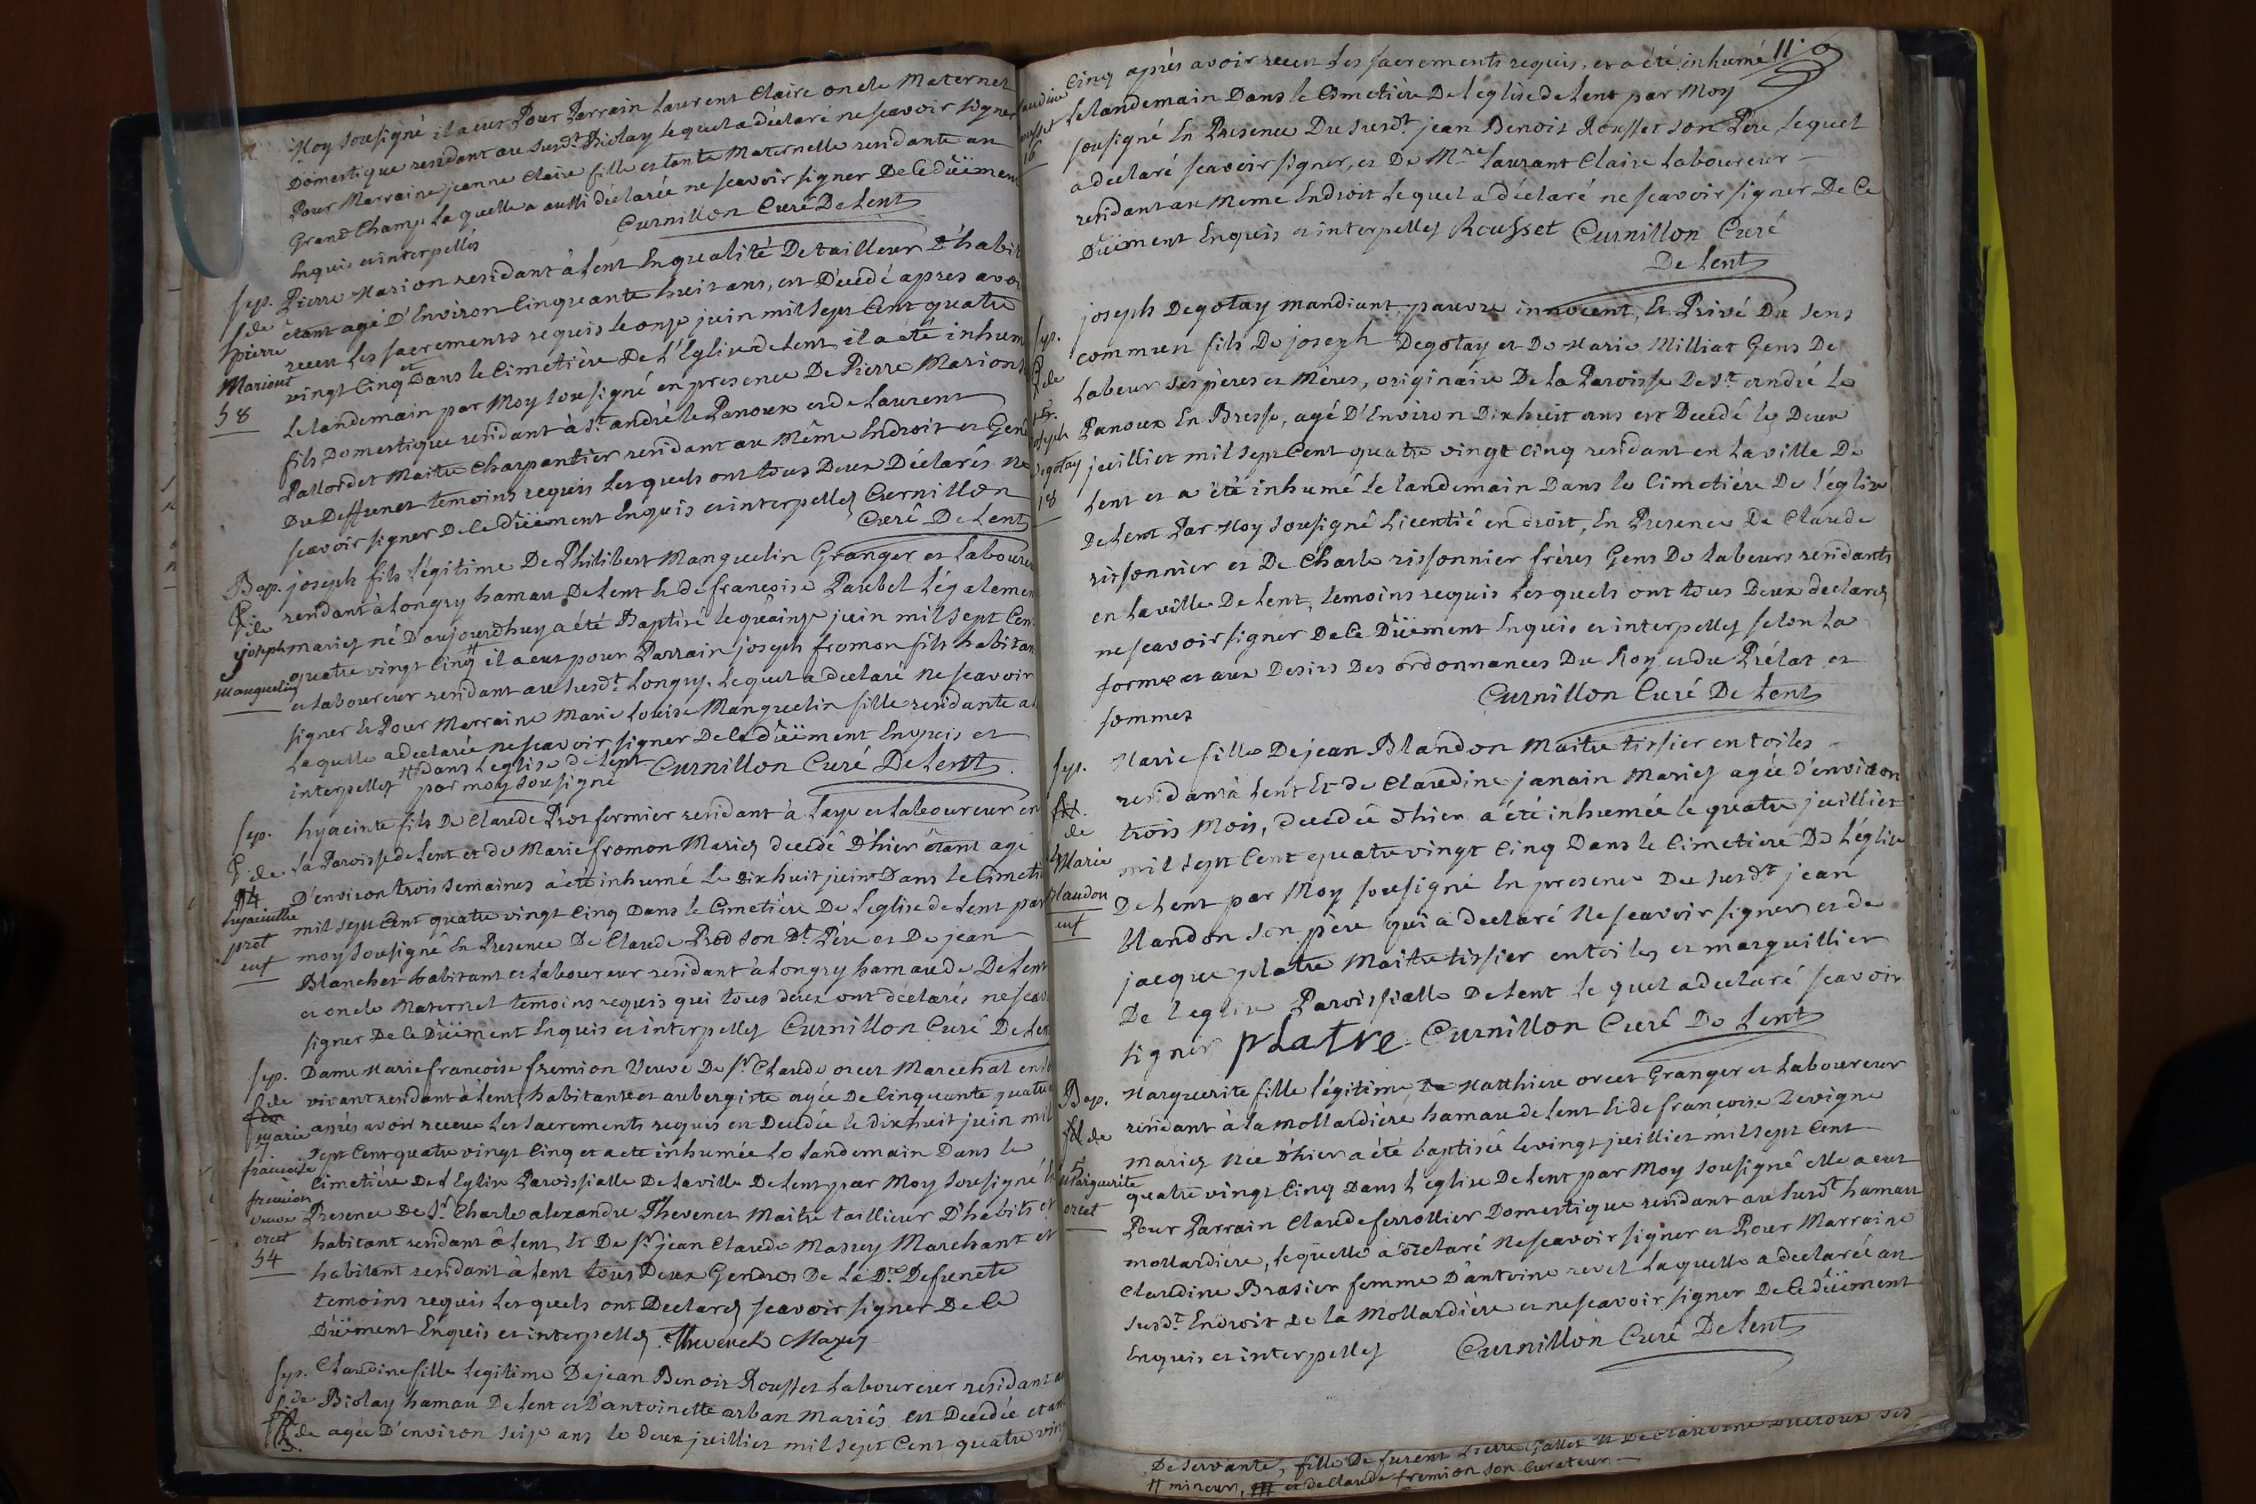 Moy sousigné il a eut Pour Parrain Laurent Claire oncle Maternel
Domestique residant au susdt Biolay lequel a déclaré ne scavoir signer
Pour Marraine jeanne Claire fille et tante Maternelle residante au
Grand Champ laquelle a aussi déclarée ne scavoir signer De Ce düement
Enquis et interpellés Curnillon Curé De Lent
sep.
de
pierre
Mariont
58
Pierre Marion residant à Lent En qualité De tailleur D'habit
étant agé D'Environ Cinquante huit ans, est Décédé apres avoi
receu Les sacrements requis le onze juin mil sept Cent quatre
vingt Cinq et Dans le Cimetière De L'Eglise de Lent il a été inhum
Le landemain par Moy sousigné en presence De Pierre Mariont
fils Domestique residant à St andré le Panoux et de Laurent
Pallordet Maitre Charpentier residant au Même Endroit et Gen
Du Deffunct temoins requis Lesquels ont tous Deux Déclarés ne
scavoir signer De Ce Düement Enquis et interpellez Curnillon
Curé De Lent
Bap.
de
joseph
Manguelin
joseph fils Légitime De Philibert Manguelin Granger et Laboureu
residant à Longry hamau De Lent & de francoise Paubel Légalemen
mariez né D'aujourdhuy a été Baptisé le quainze juin mil sept Cen
quatre vingt Cinq # il a eut pour Parrain joseph fromon fils habitan
et Laboureur residant au susdt Longry. Lequel a déclaré Ne scavoir
signer Et Pour Marraine Marie Louise Manguelin fille residante a
Laquelle a declarée ne scavoir signer De Ce düement Enquis et
interpellez # dans l'eglise de lent Curnillon Curé De Lent
par moy sousigné
sep.
de
hyacinthe
prost
enf
hyacinte fils De Claude Prost fermier residant à Laye et Laboureur en
La Paroisse de Lent et de Marie fromon Mariez decedé D'hier étant agé
D'environ trois semaines a été inhumé Le dix huit juin Dans le Cimeti
mil sept Cent quatre vingt Cinq Dans le Cimetière De l'église de Lent par
moy sousigné En Presence De Claude Prost son Dt Père et De jean
Blanchet habitant et Laboureur residant à Longry hamau de De Lent
et oncle Maternel temoins requis qui tous deux ont déclarés ne scav
signer De Ce Düement Enquis et interpellez Curnillon Curé De Len
sep.
de
Marie
francoise
fremion
veuve
orcet
54
Dame Marie francoise fremion Veuve De sr Claude orcet Marechal en
vivant residant à Lent, habitante et aubergiste agée De Cinquante quatre
aprés avoir receue Les sacrements requis est Decedée le dix huit juin mil
sept Cent quatre vingt Cinq et a été inhumée Le landemain Dans le
Cimetière De l'Eglise Paroissialle De la ville De Lent par Moy sousigné
Presence De sr Charle alexandre Thevenet Maitre taillieur D'habits et
habitant residant à Lent, Et De sr jean Claude Massey Marchant et
habitant residant à Lent tous Deux Gendres De La Dte Defuncte
temoins requis Lesquels ont Declarez scavoir signer De Ce
Düement Enquis et interpellez. Thevenet Massey
sep.
de
Claudine fille Legitime De jean Benoit Rousset Laboureur residant a
Biolay hamau De Lent et D'antoinette arban Mariés est Decedée et
agée D'environ seize ans le deux juilliet mil sept Cent quatre vin
11.
16
Cinq aprés avoir receu Les sacrements requis, et a été inhumé
le landemain Dans le Cimetière De l'église de Lent par Moy
sousigné En Presence Du susdt jean Benoit Rousset son Père lequel
a declaré scavoir signer, et De Mre Laurant Claire Laboureur
residant au Meme Endroit lequel a déclaré ne scavoir signer De Ce
Düement Enquis et interpellez Rousset Curnillon Curé
De Lent
sep.
de
joseph
Degotay
18
joseph Degotay mandiant, pauvre innocent, Et Privé Du sens
commun fils De joseph Degotay et De Marie Milliat Gens De
Labeur ses pères et Mères, originaire De La Paroisse De St andré Le
Panoux En Bresse, agé D'Environ Dix huit ans est Decedé le Deux
juilliet mil sept Cent quatre vingt Cinq residant en La ville De
Lent et a été inhumé Le landemain Dans le Cimetière De l'église
De Lent Par Moy sousigné Licentié en droit, En Presence De Claude
rissonnier et De Charle rissonnier frères Gens De Labeurs residants
en La ville De Lent, temoins requis Lesquels ont tous Deux declarez
ne scavoir signer De Ce Düement Enquis et interpellez selon La
forme et aux Desirs Des ordonnances Du Roy et du Prélat et
sommez Curnillon Curé De Lent
sep.
de
Marie
Blandon
enf
Marie fille De jean Blandon Maitre tissier en toiles
residant à Lent Et de Claudine janain Mariez agée d'environ
trois Mois, decedée d'hier a été inhumée le quatre juilliet
mil sept Cent quatre vingt Cinq Dans le Cimetiere De L'église
De Lent par Moy sousigné En presence Du susdt jean
Blandon son père qui a declaré Ne scavoir signer, et de
jacque platre Maitre tissier en toiles et marguillier
De l'eglise Paroissialle De Lent lequel a declaré scavoir
signer platre Curnillon Curé De Lent
Bap.
de
Marguerite
orcet
Marguerite fille légitime De Matthieu orcet Granger et Laboureur
residant à la Mollardière hamau de Lent & de francoise Devigne
Mariez Née d'hier a été baptisée le vingt juilliet mil sept Cent
quatre vingt Cinq Dans L'église De Lent par Moy sousigné elle a eut
Pour Parrain Claude ferrollier Domestique residant au susdt hamau
mollardiere, lequelle a declaré Ne scavoir signer et Pour Marraine
Claudine Brasier femme D'antoine revel Laquelle a declarée au
susdt Endroit de la Mollardière et ne scavoir signer De Ce düement
Enquis et interpellez Curnillon Curé De Lent
De servante, fille De furent Pierre Gallet Et De Claudine
# mineur, et de Claude fremion son Curateur